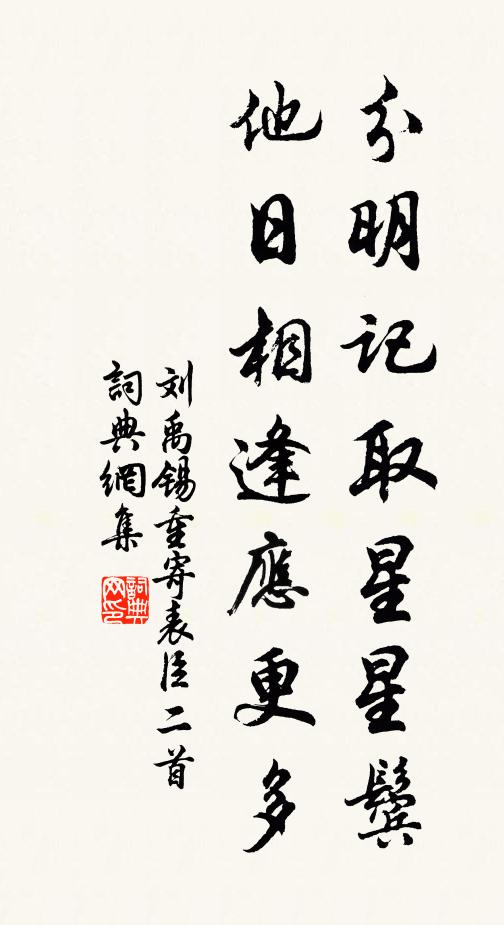 分明記取星星鬢
他日相逢應更多
刘禹锡重寄表臣二首
詞典網集
詞典网印